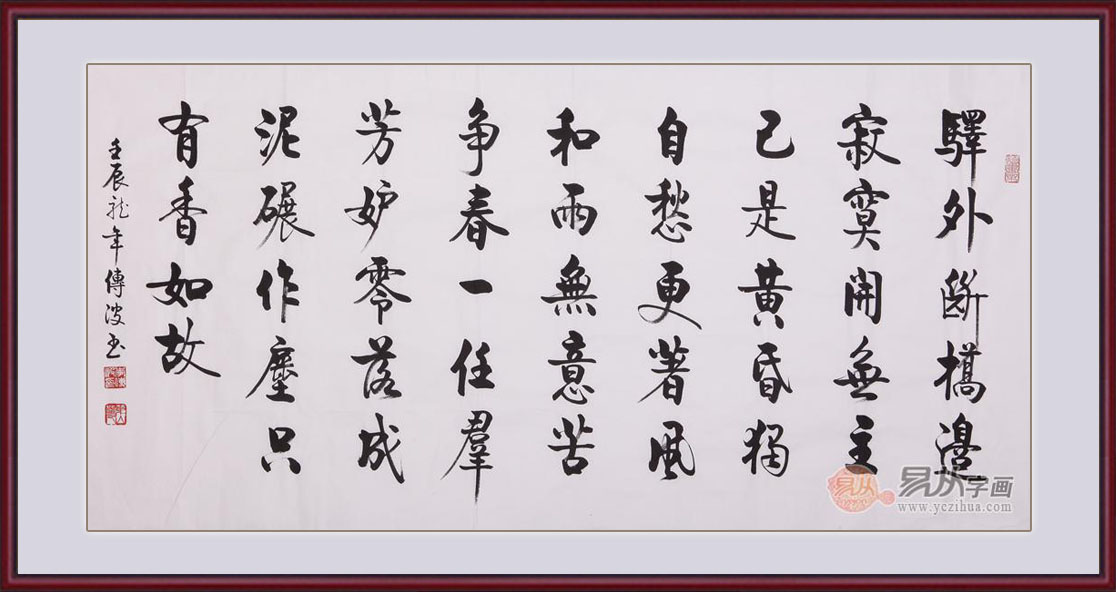 驛外斷橋邊
寂寞開無主
已是黄昏獨
自愁更著風
和雨無意苦
争春一任羣
芳妒零落成
泥碾作塵只
有香如故
壬辰龍年傳波書
易从
易从字画
www.yczihua.com